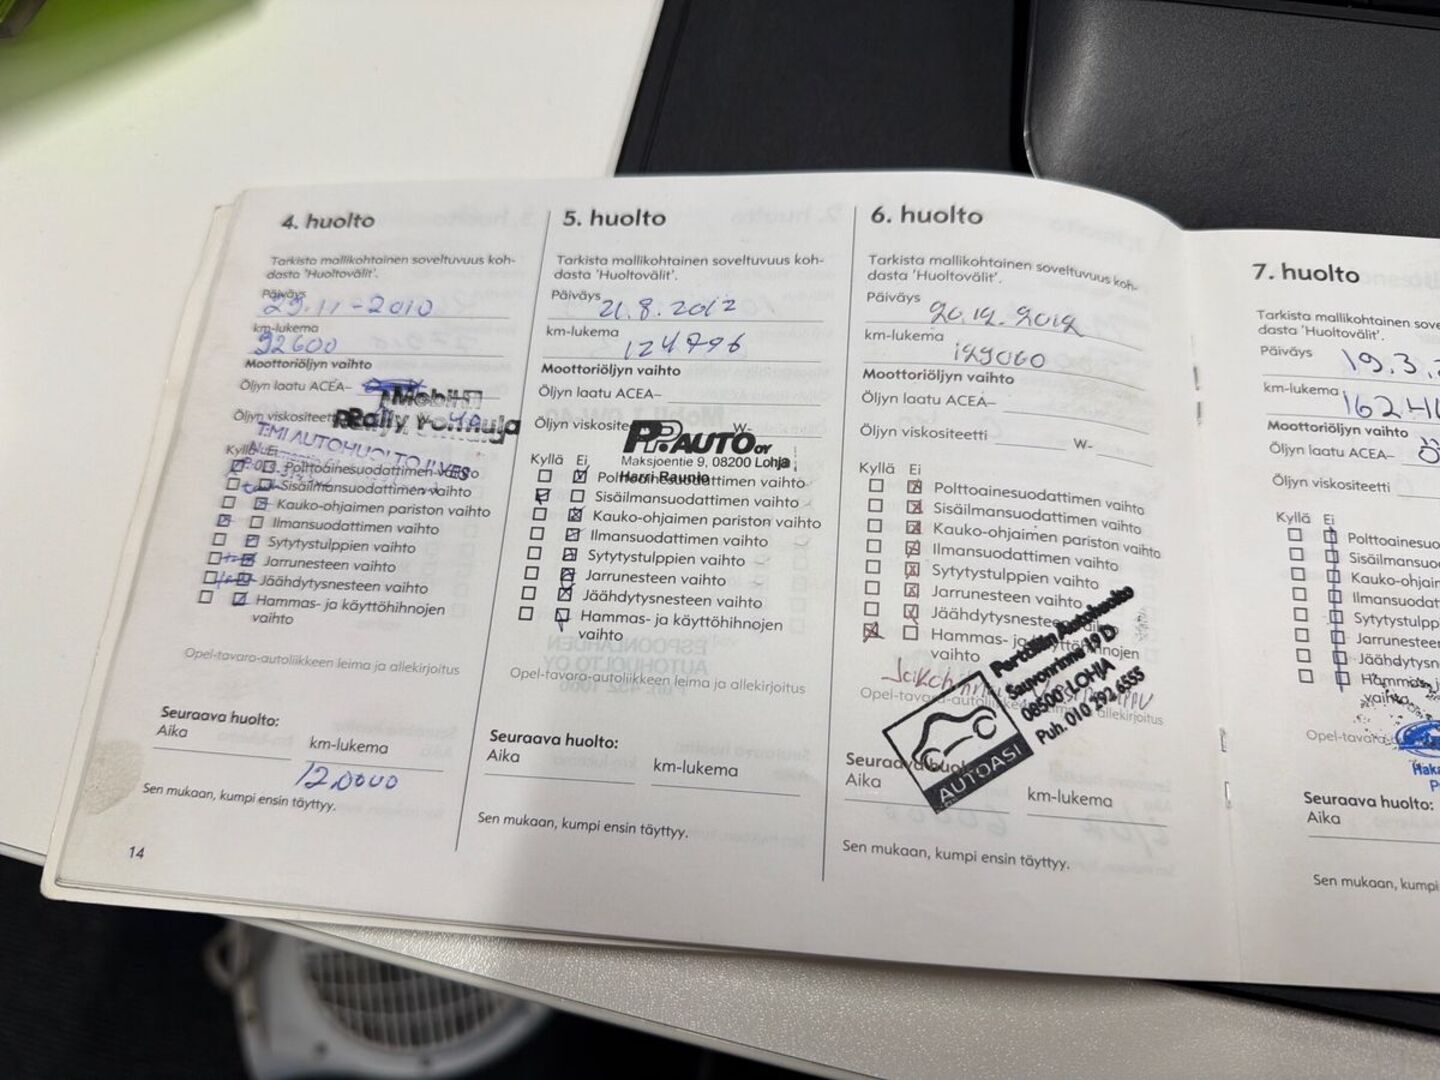 4. huolto
Tarkista mallikohtainen soveltuvuus koh-
dasta 'Huoltovälit'.
Päiväys
29.11-2010
km-lukema
92600
Moottoriöljyn vaihto
Öljyn laatu ACEA–
Mobil
Öljyn viskositeetti W-40
Rally
T:MI AUTOHUOLTO ILVES
Kyllä Ei
Polttoainesuodattimen vaihto
Sisäilmansuodattimen vaihto
Kauko-ohjaimen pariston vaihto
Ilmansuodattimen vaihto
Sytytystulppien vaihto
Jarrunesteen vaihto
Jäähdytysnesteen vaihto
Hammas- ja käyttöhihnojen
vaihto
Opel-tavara-autoliikkeen leima ja allekirjoitus
Seuraava huolto:
Aika
km-lukema
120000
Sen mukaan, kumpi ensin täyttyy.
14
5. huolto
Tarkista mallikohtainen soveltuvuus koh-
dasta 'Huoltovälit'.
Päiväys
21.8.2012
km-lukema
124796
Moottoriöljyn vaihto
Öljyn laatu ACEA–
Öljyn viskositeetti W-
PP.AUTO OY
Maksjoentie 9, 08200 Lohja
Harri Raunio
Kyllä Ei
Polttoainesuodattimen vaihto
Sisäilmansuodattimen vaihto
Kauko-ohjaimen pariston vaihto
Ilmansuodattimen vaihto
Sytytystulppien vaihto
Jarrunesteen vaihto
Jäähdytysnesteen vaihto
Hammas- ja käyttöhihnojen
vaihto
Opel-tavara-autoliikkeen leima ja allekirjoitus
Seuraava huolto:
Aika
km-lukema
Sen mukaan, kumpi ensin täyttyy.
6. huolto
Tarkista mallikohtainen soveltuvuus koh-
dasta 'Huoltovälit'.
Päiväys
20.12.2012
km-lukema
129060
Moottoriöljyn vaihto
Öljyn laatu ACEA–
Öljyn viskositeetti W-
Kyllä Ei
Polttoainesuodattimen vaihto
Sisäilmansuodattimen vaihto
Kauko-ohjaimen pariston vaihto
Ilmansuodattimen vaihto
Sytytystulppien vaihto
Jarrunesteen vaihto
Jäähdytysnesteen vaihto
Hammas- ja käyttöhihnojen
vaihto
Opel-tavara-autoliikkeen leima ja allekirjoitus
Perttilän Autohuolto
Sauvonrinne 19 D
08500 LOHJA
Puh. 010 292 6555
AUTOASI
Seuraava huolto:
Aika
km-lukema
Sen mukaan, kumpi ensin täyttyy.
7. huolto
Tarkista mallikohtainen sove
dasta 'Huoltovälit'.
Päiväys
19.3.
km-lukema
Moottoriöljyn vaihto
Öljyn laatu ACEA–
Öljyn viskositeetti
Kyllä Ei
Polttoainesuo
Sisäilmansuo
Kauko-ohjain
Ilmansuodat
Sytytystulpp
Jarrunesteen
Jäähdytysn
Hammas- j
vaihto
Opel-tavara
Seuraava huolto:
Aika
Sen mukaan, kumpi